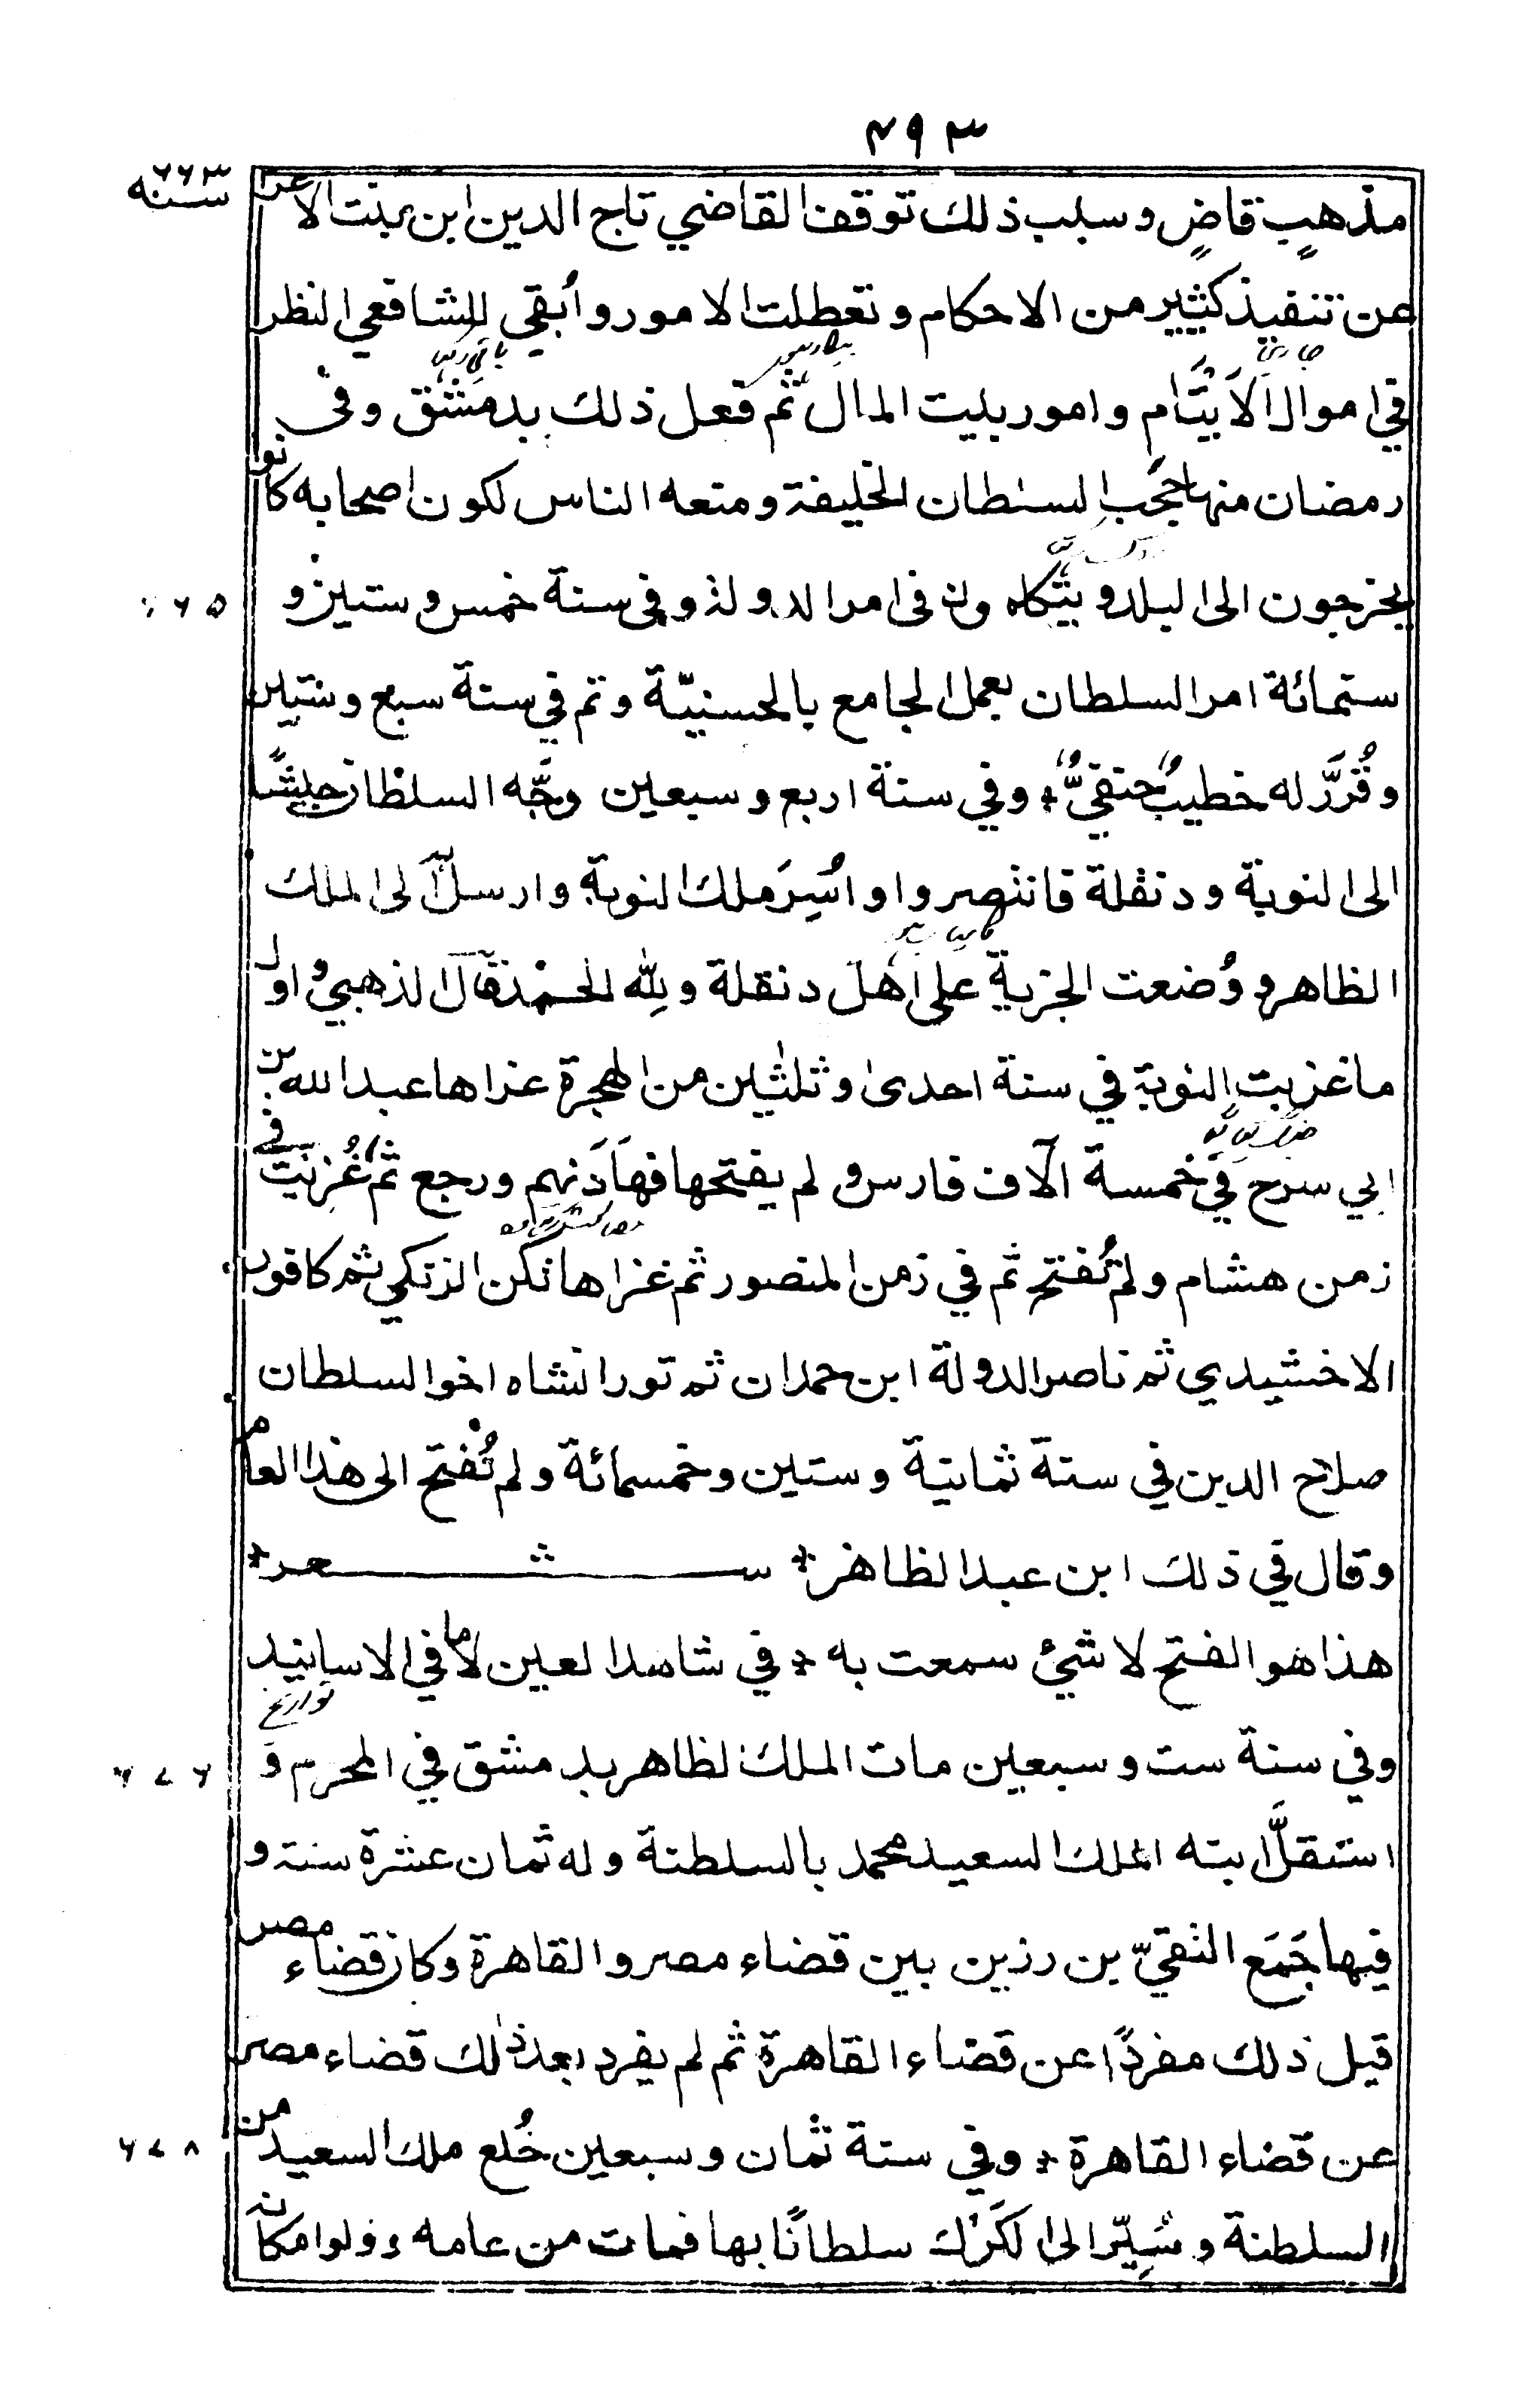 ٤٩٣
سنه ٦٦٣
مذهبٍ قاضٍ وسبب ذلك توقف القاضي تاج الدين ابن بنت الاعز
عن تنفيذ كثير من الاحكام وتعطلت الامور وأبقي للشافعي النظر
في اموال الاَيتَام وامور بيت المال ثم فعل ذلك بدمشق وفي
رمضان منها حجب السلطان الخليفة ومنعه الناس لكون اصحابه كانو
يخرجون الى البلد و يتكلمون في امر الدولة وفي سنة خمس وستين و
٦٦٥
ستمائة امر السلطان بعمل الجامع بالحسنيّة وتم في سنة سبع وستين
وقُرِّرَ له خطيبٌ حنفيٌّ * وفي سنة اربع وسبعين وجَّه السلطان جيشًا
الى النوبة ودنقلة فانتصروا واُسِرَ ملك النوبة وارسل به الى الملك
الظاهر ووُضعت الجزية على اهل دنقلة ولِلّٰه الحمد قال الذهبي واول
ما غزيت النوبة في سنة احدى وثلثين من الهجرة غزاها عبد الله بن
ابي سرح في خمسة آلاف فارس و لم يفتحها فهَادَنهم ورجع ثم غُزيت في
زمن هشام ولم تُفتح ثم في زمن المنصور ثم غزاها تكن الزنكي ثم كافور
الاخشيدي ثم ناصر الدولة ابن حمدان ثم تورانشاه اخو السلطان
صلاح الدين في سنة ثمانية وستين وخمسمائة ولم تُفتح الى هذا العام
وقال في ذلك ابن عبد الظاهر * شعر *
هذا هو الفتح لا شيئ سمعت به * في شاهد العين لا ما في الاسانيد
تواريخ
وفي سنة ست وسبعين مات الملك الظاهر بدمشق في المحرم و
٦٧٦
استقلَّ ابنه الملك السعيد محمد بالسلطنة وله ثمان عشرة سنة و
فيها جَمَع التقيّ بن رزين بين قضاء مصر والقاهرة وكان قضاء مصر
قبل ذلك مفردًا عن قضاء القاهرة ثم لم يفرد بعد ذلك قضاء مصر
عن قضاء القاهرة * وفي سنة ثمان وسبعين خُلع ملك السعيد من
٦٧٨
السلطنة وسُيِّر الى الكَرَك سلطانًا بها فمات من عامه وولوا مكانه